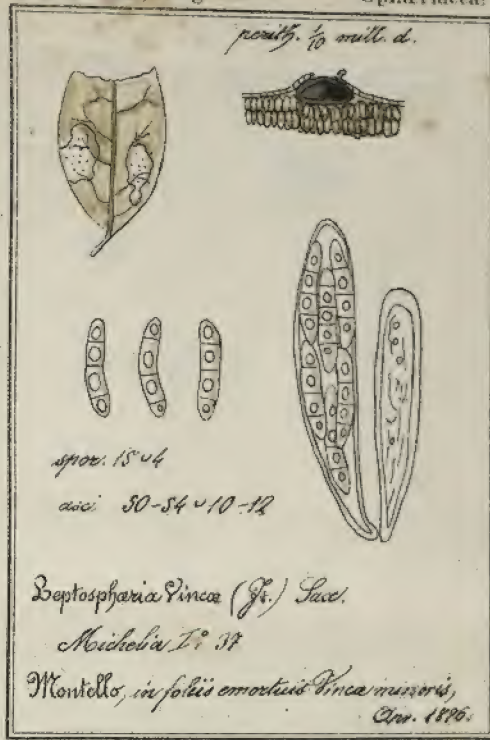 perith. 1/10 mill. d.
spor. 15 ⌣ 4
asci 50-54 ⌣ 10-12
Leptosphæria Vincæ (Fr.) Sacc.
Michelia I° 37
Montello, in foliis emortuis Vincæ minoris,
Apr. 1876.